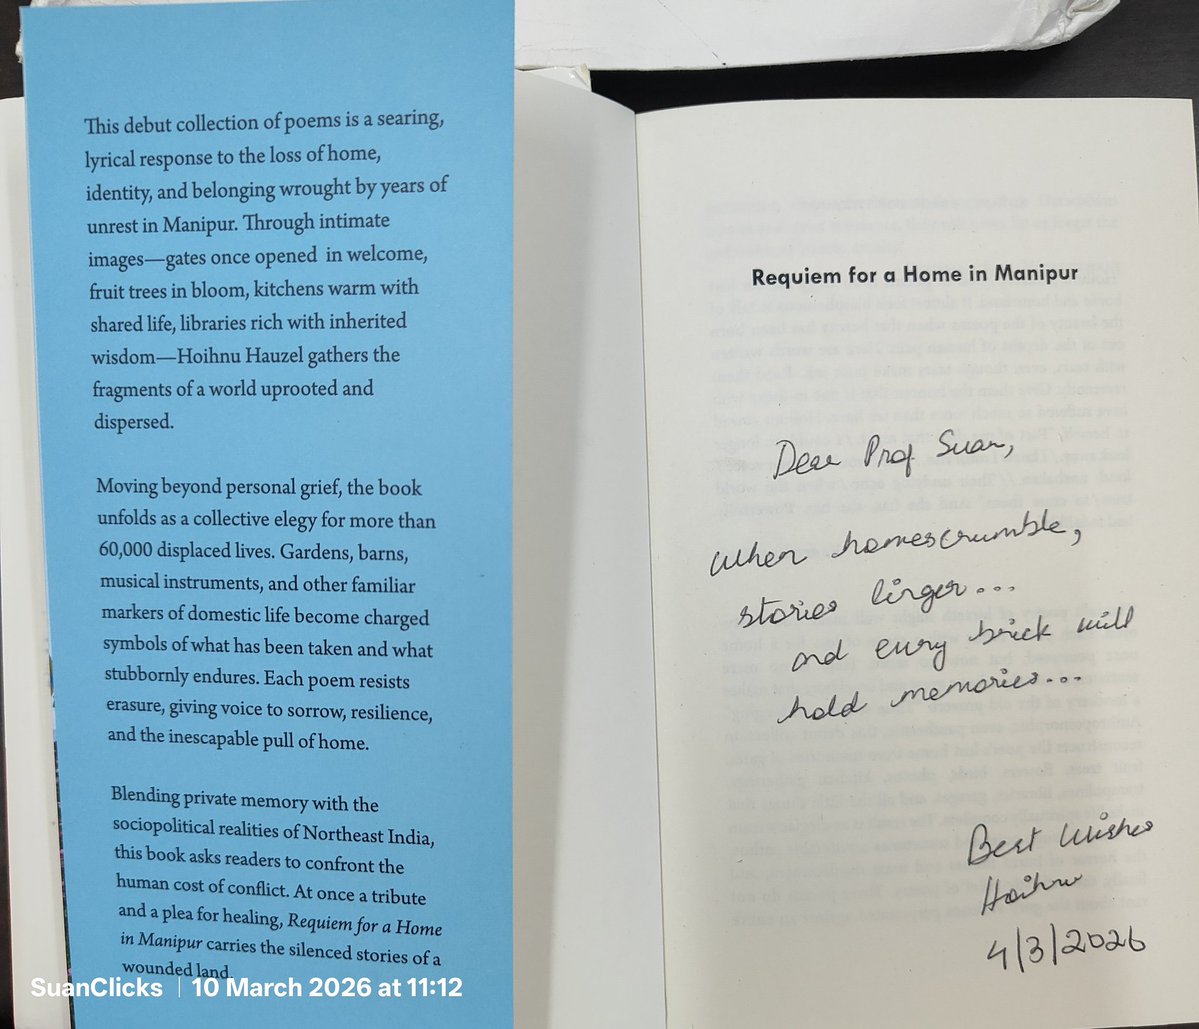 This debut collection of poems is a searing,
lyrical response to the loss of home,
identity, and belonging wrought by years of
unrest in Manipur. Through intimate
images—gates once opened in welcome,
fruit trees in bloom, kitchens warm with
shared life, libraries rich with inherited
wisdom—Hoihnu Hauzel gathers the
fragments of a world uprooted and
dispersed.
Moving beyond personal grief, the book
unfolds as a collective elegy for more than
60,000 displaced lives. Gardens, barns,
musical instruments, and other familiar
markers of domestic life become charged
symbols of what has been taken and what
stubbornly endures. Each poem resists
erasure, giving voice to sorrow, resilience,
and the inescapable pull of home.
Blending private memory with the
sociopolitical realities of Northeast India,
this book asks readers to confront the
human cost of conflict. At once a tribute
and a plea for healing, Requiem for a Home
in Manipur carries the silenced stories of a
wounded land.
Requiem for a Home in Manipur
Dear Prof Suan,
When homes crumble,
stories linger...
and every brick will
hold memories...
Best Wishes
Hoihnu
4/3/2026
SuanClicks | 10 March 2026 at 11:12